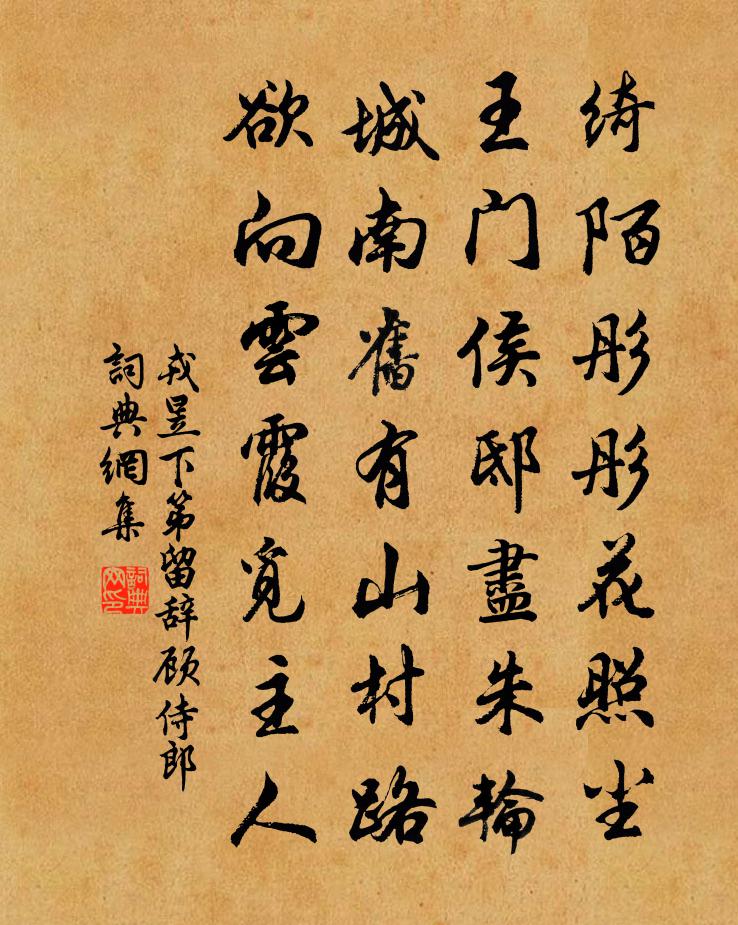 绮陌彤彤花照尘
王门侯邸盡朱輪
城南舊有山村路
欲向雲霞觅主人
戎昱下第留辞顾侍郎
詞典網集
詞典网印